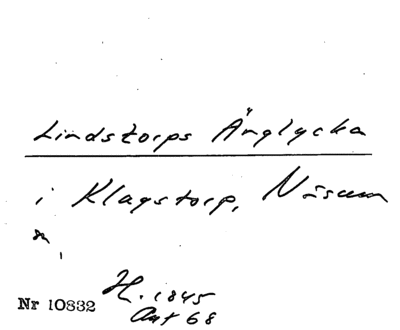 Lindstorps Änglycka
i Klagstorp, Näsum
sn,
H. 1845
Akt 68
Nr 10832